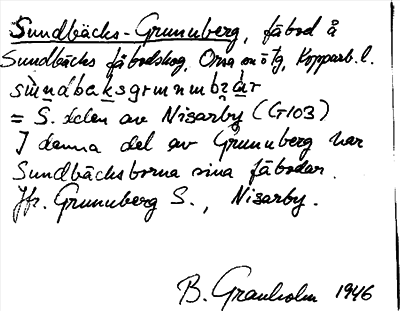 Sundbäcks-Grunuberg, fäbod å
Sundbäcks fäbodskog, Orsa sn ö tg, Kopparb. l.
= S. delen av Nisarby (G103)
I denna del av Grunuberg har
Sundbäcksborna sina fäbodar.
Jfr. Grunuberg S., Nisarby.
B. Granholm 1946